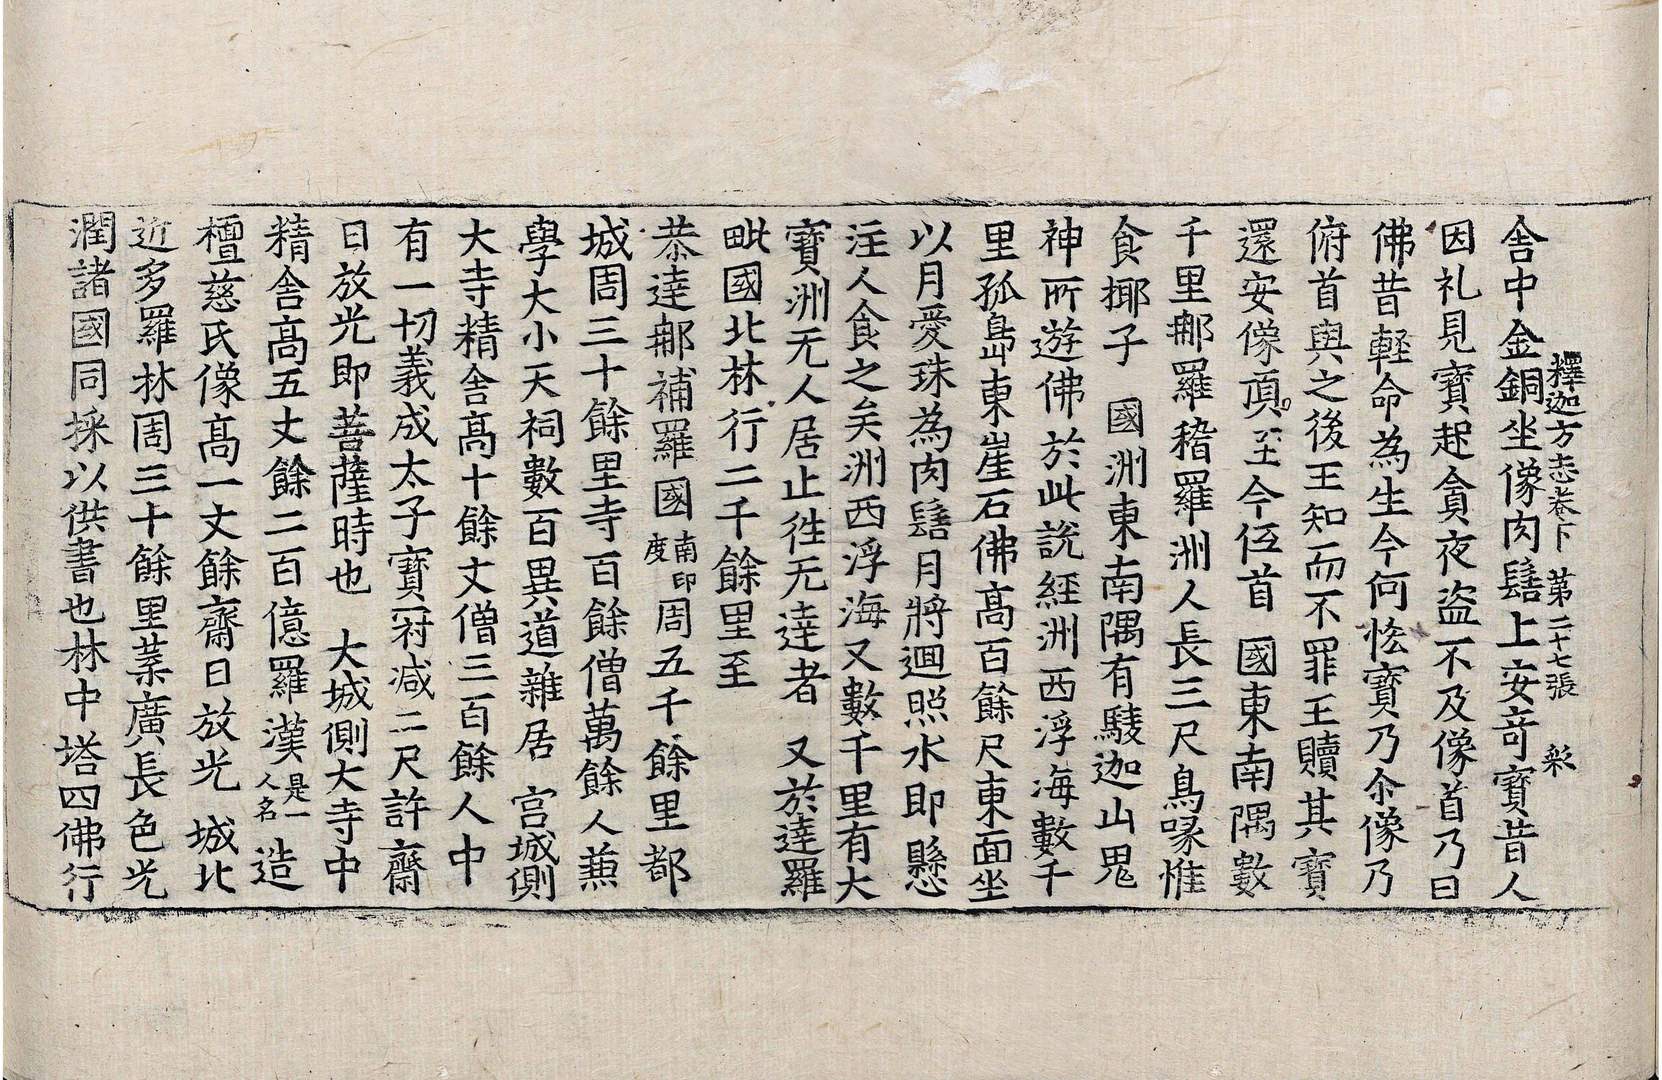 釋迦方志卷下 第二十七張 彩
舎中金銅坐像肉髻上安竒寳昔人
因礼見寳起貪夜盗不及像首乃曰
佛昔輕命為生今何恡寳乃尒像乃
俯首與之後王知而不罪王贖其寳
還安像頂至今伍首 國東南隅數
千里䣕羅稽羅洲人長三尺鳥喙惟
食揶子 國洲東南隅有䮚迦山鬼
神所遊佛於此說經洲西浮海數千
里孤㠀東崖石佛高百餘尺東面坐
以月愛珠為肉髻月將迴照水即懸
注人食之矣洲西浮海又數千里有大
寳洲无人居止徃无達者 又於達羅
毗國北林行二千餘里至
恭達䣕補羅國南印度周五千餘里都
城周三十餘里寺百餘僧萬餘人兼
學大小天祠數百異道雜居 宫城側
大寺精舎高十餘丈僧三百餘人中
有一切義成太子寳冠減二尺許齋
日放光即菩薩時也 大城側大寺中
精舎高五丈餘二百億羅漢是一人名造
檀慈氏像高一丈餘齋日放光 城北
近多羅林周三十餘里葉廣長色光
潤諸國同採以供書也林中塔四佛行